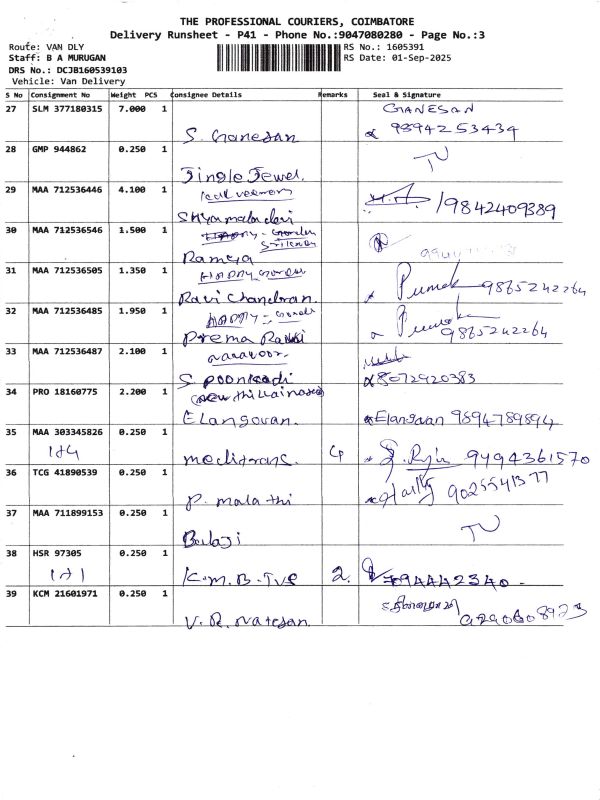 THE PROFESSIONAL COURIERS, COIMBATORE
Delivery Runsheet - P41 - Phone No.:9047080280 - Page No.:3
Route: VAN DLY
RS No.: 1605391
Staff: B A MURUGAN
RS Date: 01-Sep-2025
DRS No.: DCJB160539103
Vehicle: Van Delivery
S No Consignment No Weight PCS Consignee Details Remarks Seal & Signature
27 SLM 377180315 7.000 1 GANESAN
S. Ganesan 9894253434
28 GMP 944862 0.250 1
Jingle Jewel.
29 MAA 712536446 4.100 1
Shyamala devi /9842409389
30 MAA 712536546 1.500 1
Ramya
31 MAA 712536505 1.350 1
HAPPY
Ravi Chandran. 9865242264
32 MAA 712536485 1.950 1
HAPPY
Prema 9865242264
33 MAA 712536487 2.100 1
S. Poonkodi 8072920383
34 PRO 18160775 2.200 1
Elangovan. Elangaan 9894789894
35 MAA 303345826 0.250 1
1+4
4 9494361570
36 TCG 41890539 0.250 1
P. malathi 9025541377
37 MAA 711899153 0.250 1
Balaji
38 HSR 97305 0.250 1
1+1
K.M.B-Tve 2. 94442340
39 KCM 21601971 0.250 1
V.R. Natesan.